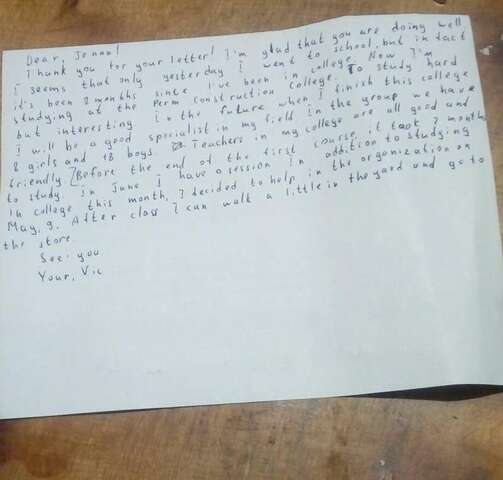 Dear, Jenna!
Thank you for your letter! I'm glad that you are doing well
I seems that only yesterday I went to school, but in fact
it's been 8 months sinse I've been in college. Now I'm
studying at the Perm Construction College. To study hard
but interesting In the future when I finish this college
I will be a good specialist in my field In the group we have
8 girls and 18 boys. Teachers in my college are all good and
friendly Before the end of the first course it took 2 months
to study. In June I have a session In addition to studying
In college this month, I decided to help in the organization on
May, 9. After class I can walk a little in the yard and go to
the store.
See. you
Your, Vic